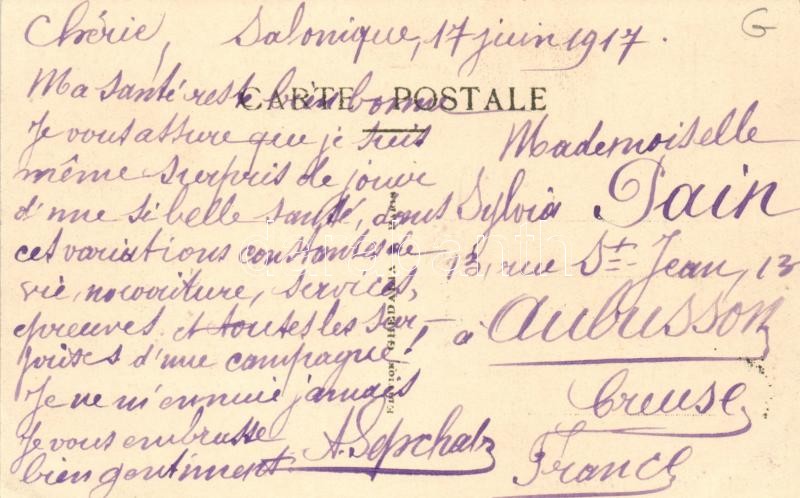 Chérie, Salonique, 17 juin 1917.
Ma santé reste bien bonne
CARTE POSTALE
Je vous assure que je suis
même surpris de jouir
d'une si belle santé, avec
ces variations constantes de
vie, nourriture, services,
épreuves et toutes les sur-
prises d'une campagne!
Je ne m'ennuie jamais
Je vous embrasse
bien gentiment.
Mademoiselle
Sylvia Pain
13, rue St Jean, 13
à Aubusson
Creuse
France